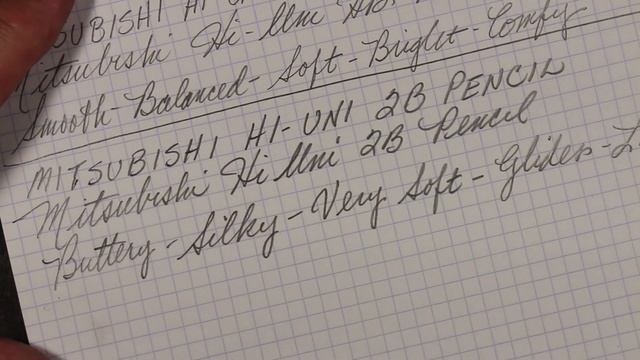 MITSUBISHI HI-
Mitsubishi Hi-Uni
Smooth-Balanced-Soft-Bright-Comfy
MITSUBISHI HI-UNI 2B PENCIL
Mitsubishi Hi Uni 2B Pencil
Buttery-Silky-Very Soft-Glides-